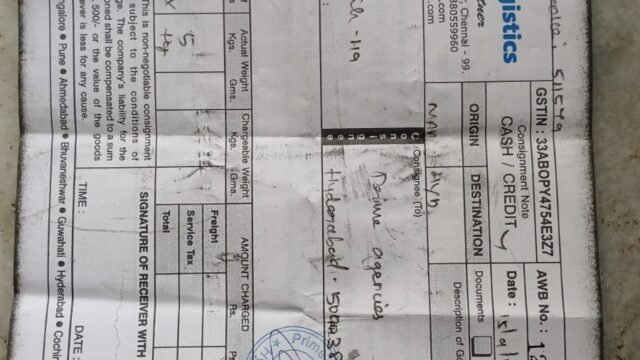 gistics
, Chennai - 99.
880559960
.com
s.com
GSTIN : 33ABOPY4754E3Z7
Consignment Note
CASH / CREDIT
AWB No. :
Date :
ORIGIN
DESTINATION
Hyd
Documents
Description of G
Consignee (To)
agencies
Hyderabad. 500038
Consignee
Actual Weight
Kgs. Gms.
5
Chargeable Weight
Kgs. Gms.
AMOUNT CHARGED
Rs.
Freight
Service Tax
Total
Prime
This is non-negotiable consignment
subject to the conditions of
ge. The company's liability for the
oned shall be compensated to a sum
500/- or the value of the goods
ever is less for any cause.
SIGNATURE OF RECEIVER WITH
TIME :
DATE :
angalore ● Pune ● Ahmedabad ● Bhuvaneshwar ● Guwahati ● Hyderabad ● Cochin